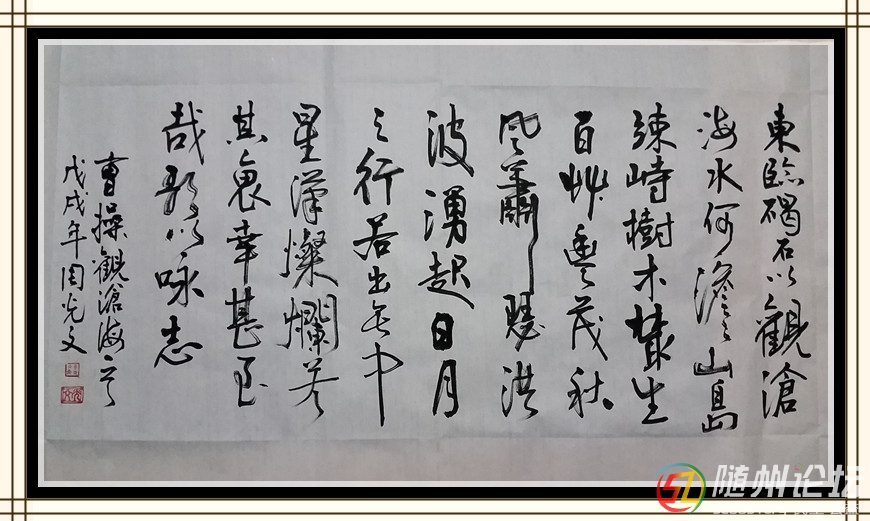 東臨碣石以觀滄
海水何澹々山島
竦峙樹木叢生
百艸豐茂秋
風蕭瑟洪
波湧起日月
之行若出其中
星漢燦爛若
其裏幸甚至
哉歌以咏志
曹操觀滄海
戊戌年周光文
随州论坛